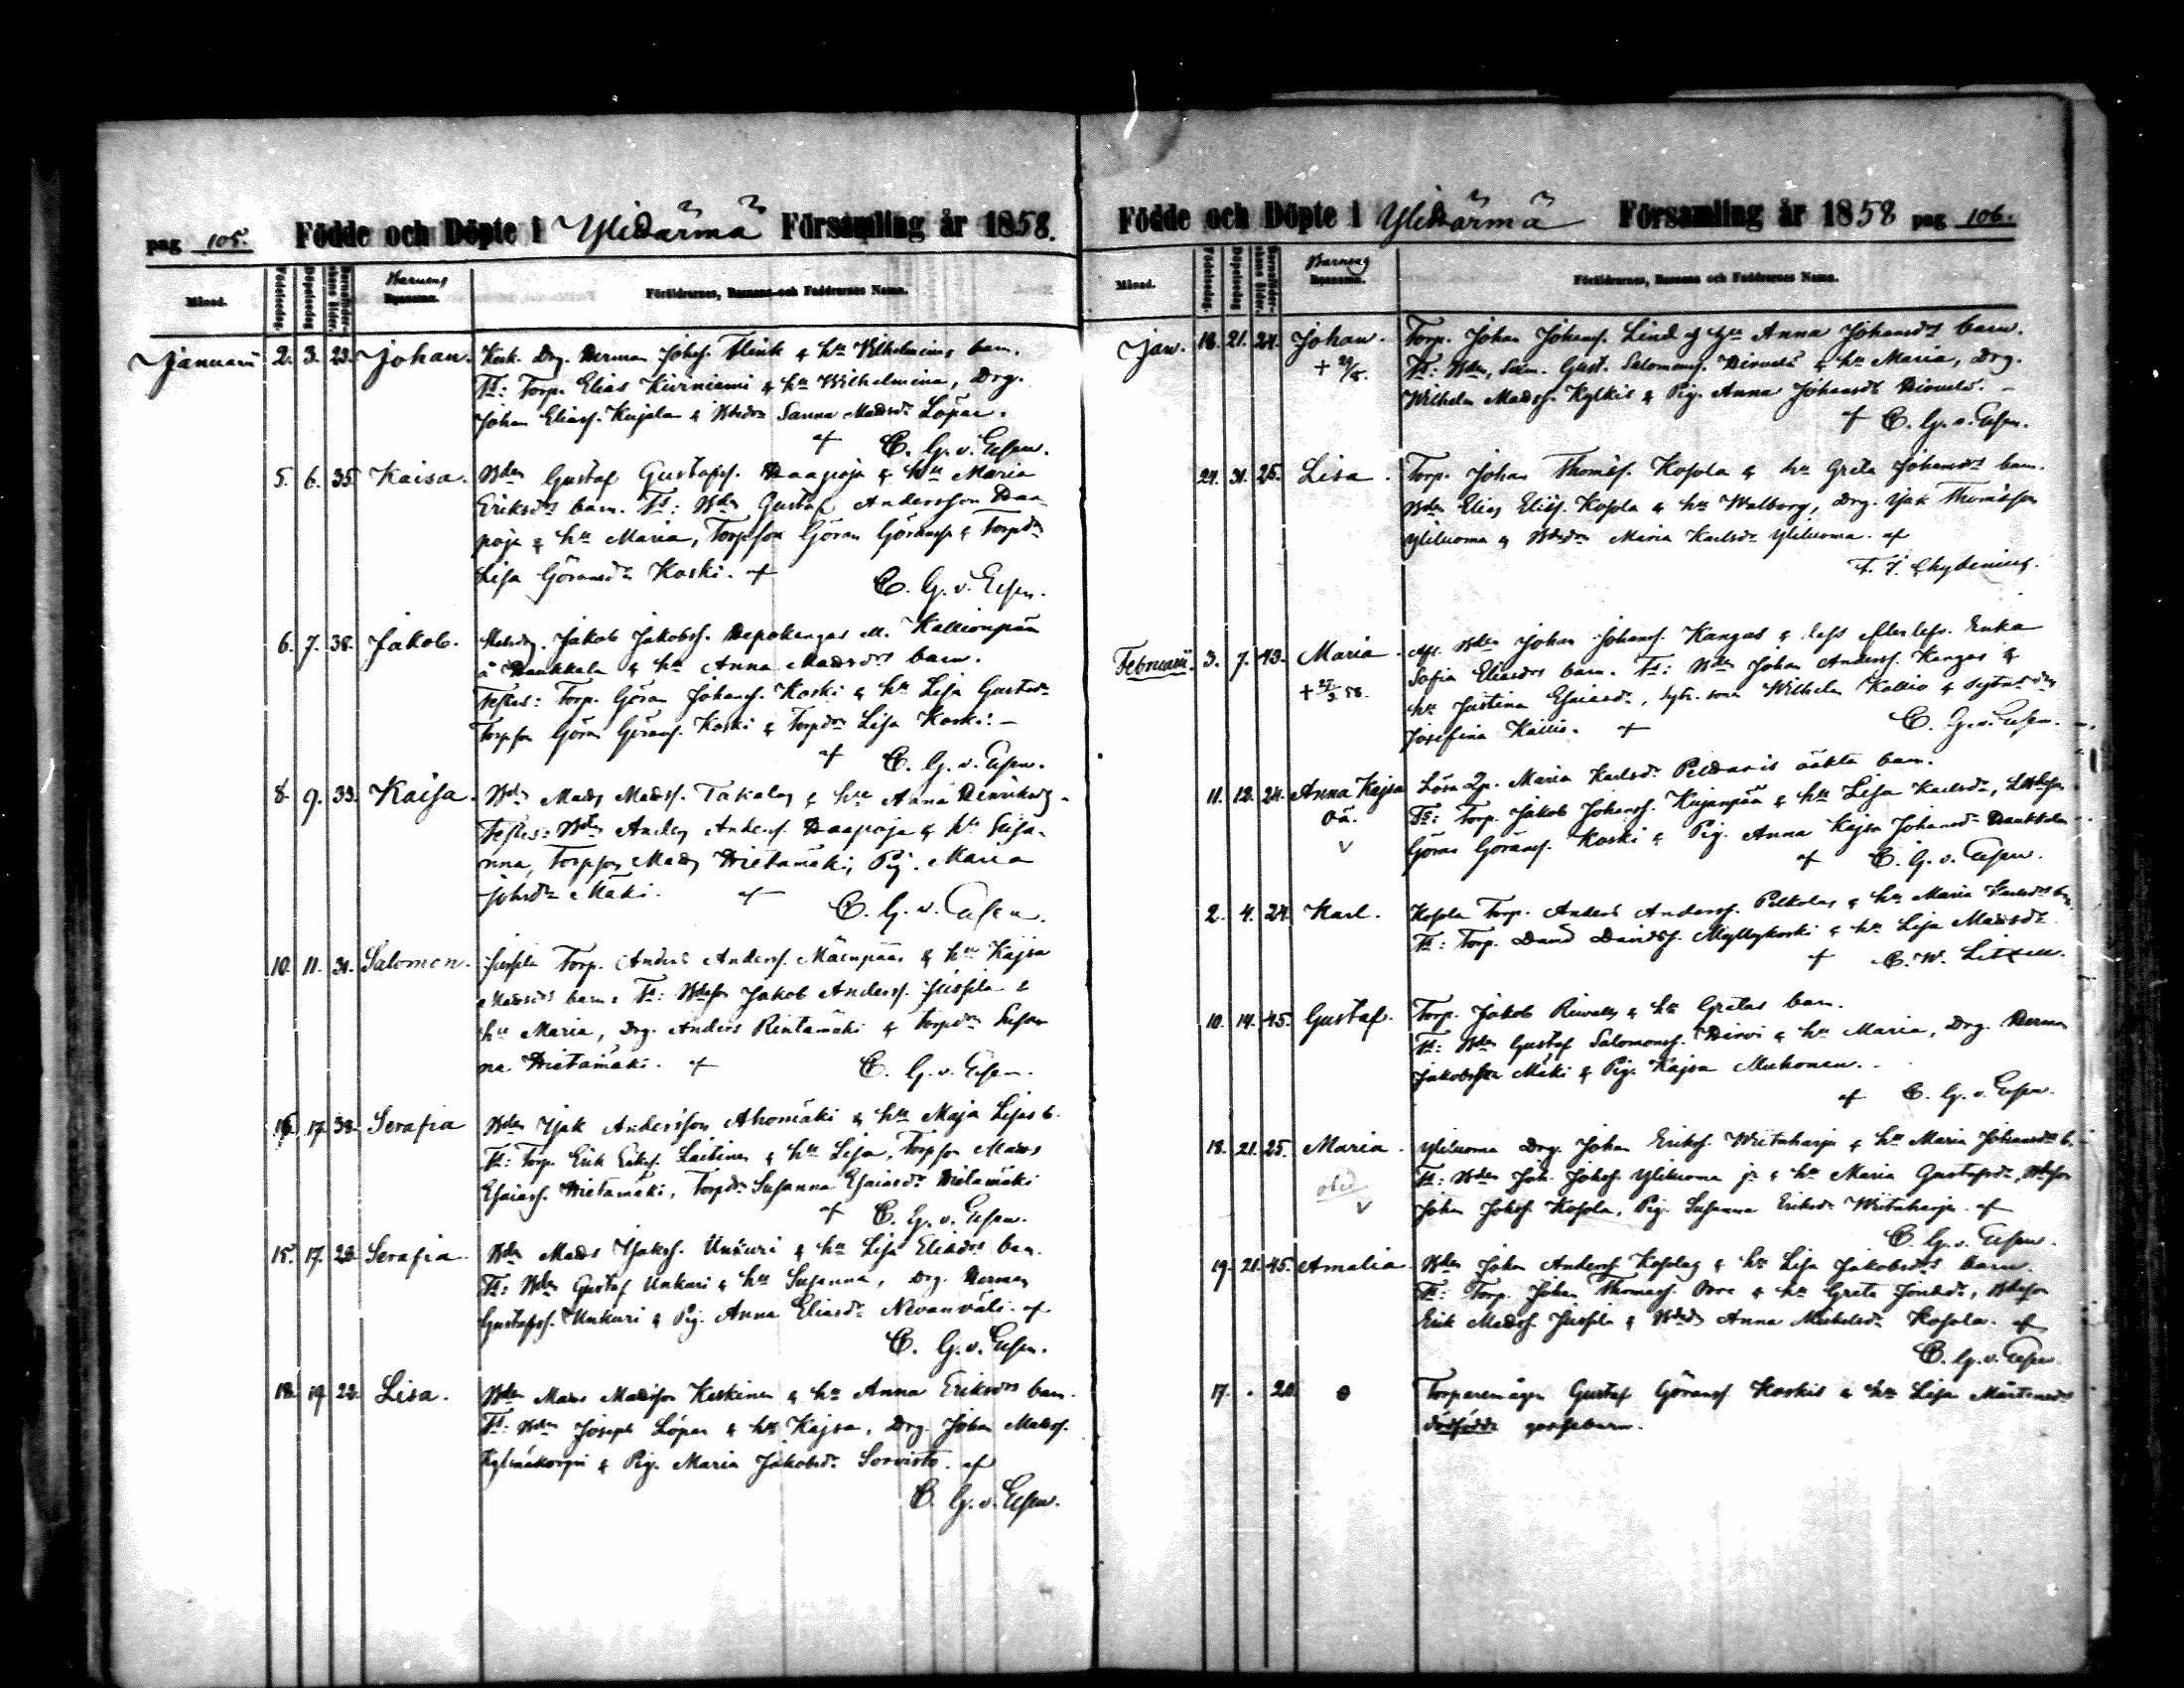 pag 105. Födde och Döpte i Ylihärmä Församling år 1858.
Månad. Födelsedag. Döpelsedag Barnens Föräldrarnes, Barnens och Faddrarnes Namn.
Januarii 2. 3. 23. Johan. Drg. Herman Johss. Flink & hu Wilhelminas barn.
Ts: Torp. Elias Kiviniemi & hu Wilhelmina, Drg.
Johan Eliass. Kujala & Sanna Madsdr Löpar.
af C. G. v. Essen.
5. 6. 35 Kaisa. Bdn Gustaf Gustafss. Haapoja & hu Maria
Eriksdrs barn. Ts: Bdn Gustaf Andersson Haa
poja & hu Maria, Torpson Göran Göranss. & Torpdr
Lisa Göransdr Koski. af C. G. v. Essen.
6. 7. 38. Jakob. Jakob Jakobss. Kallionpää
å Haukkala & hu Anna Madsdrs barn.
Testes: Torp. Göran Johanss. Koski & hu Lisa Gustsdr
Torpson Göran Göranss. Koski & Torpdr Lisa Koski. —
af C. G. v. Essen.
8. 9. 33. Kaisa. Bdn Mads Madss. Takalas & hu Anna Henriksdr.
Testes: Bdn Anders Anderss. Haapoja & hu Susa-
nna, Torpson Mads Hietamäki, Pig. Maria
Johsdr Mäki. af C. G. v. Essen.
10. 11. 31. Salomon. Jussila Torp. Anders Anderss. Mäenpääs & hu Kajsa
Madsdrs barn: Ts: Bdson Jakob Anderss. Jussila &
hu Maria, Drg. Anders Rintamäki & Torpdr Susan
na Hietamäki. af C. G. v. Essen.
16. 17. 38. Serafia Bdn Isak Andersson Ahomäki & hu Maja Lisas b.
Ts: Torp. Erik Erikss. Laitinen & hu Lisa, Torpson Mads
Esaiass. Hietamäki, Torpdr Susanna Esaiasdr Hietamäki
af C. G. v. Essen.
15. 17. 28. Serafia. Bdn Mads Isakss. Unkuri & hu Lisa Eliasdrs barn.
Ts: Bdn Gustaf Unkuri & hu Susanna, Drg. Herman
Gustafss. Unkuri & Pig. Anna Eliasdr Nevanväli. af
C. G. v. Essen.
18. 19. 22. Lisa. Bdn Mads Madsson Keskinen & hu Anna Eriksdrs barn.
Ts: Bdn Joseph Löpar & hu Kajsa, Drg. Johan Madss.
& Pig. Maria Jakobsdr Sorvisto. af
C. G. v. Essen.
Födde och Döpte i Ylihärmä Församling år 1858 pag 106.
Månad. Födelsedag. Döpelsedag Barnens Föräldrarnes, Barnens och Faddrarnes Namn.
Jan. 18. 21. 24. Johan. Torp. Johan Johanss. Lind & hu Anna Johansdrs barn.
+ 29/8. Ts: Bdn, Gust. Salomonss. & hu Maria, Drg.
Wilhelm Madss. Kylkis & Pig. Anna Johansdr —
af C. G. v. Essen.
24. 31. 25. Lisa. Torp. Johan Thomass. Kosola & hu Greta Johansdrs barn.
Bdn Elias Eliss. Kosola & hu Walborg, Drg. Isak Thomasson
Yliluoma & Maria Karlsdr Yliluoma. af
F. J. Chydenius.
Februarii. 3. 7. 43. Maria. Bdn Johan Johanss. Kangas & dess efterlefv. Erika
+ 27/3 58. Sofia Eliasdrs barn. Ts: Bdn Johan Anderss. Kangas &
hu Justina Esaiasdr, Wilhelm Kallio &
Josefina Kallio. af C. G. v. Essen.
11. 12. 24. Anna Kajsa Lösa Qp. Maria Karlsdr oäkta barn.
oä. Ts: Torp. Jakob Johanss. Kujanpää & hu Lisa Karlsdr,
v Göran Göranss. Koski & Pig. Anna Kajsa Johansdr Haukkala
af C. G. v. Essen.
2. 4. 24. Karl. Kosola Torp. Anders Anderss. Pelkolas & hu Maria Karlsdrs b.
Ts: Torp. David Davidss. Myllykoski & hu Lisa Madsdr.
af C. W. Litzen.
10. 14. 45. Gustaf. Torp. Jakob & hu Gretas barn.
Ts: Bdn Gustaf Salomonss. Hirvi & hu Maria, Drg. Herman
Jakobsson Mäki & Pig. Kajsa Muhonen.
af C. G. v. Essen.
18. 21. 25. Maria. Yliluoma Drg. Johan Erikss. Wiitaharju & hu Maria Johansdrs b.
obid Ts: Bdn Joh. Johss. Yliluoma jr & hu Maria Gustafsdr, Bdson
v Johan Johss. Kosola, Pig. Susanna Eriksdr Wiitaharju. af
C. G. v. Essen.
19. 21. 45. Amalia Bdn Johan Anderss. Kosolas & hu Lisa Jakobsdrs barn.
Ts: Torp. Johan Thomass. Orre & hu Greta, Bdson
Erik Madss. Jussila & Bdndr Anna Michelsdr Kosola. af
C. G. v. Essen.
17. . 20. Torparemågen Gustaf Göranss. Koskis & hu Lisa Mårtensdrs
dödfödde gossebarn.